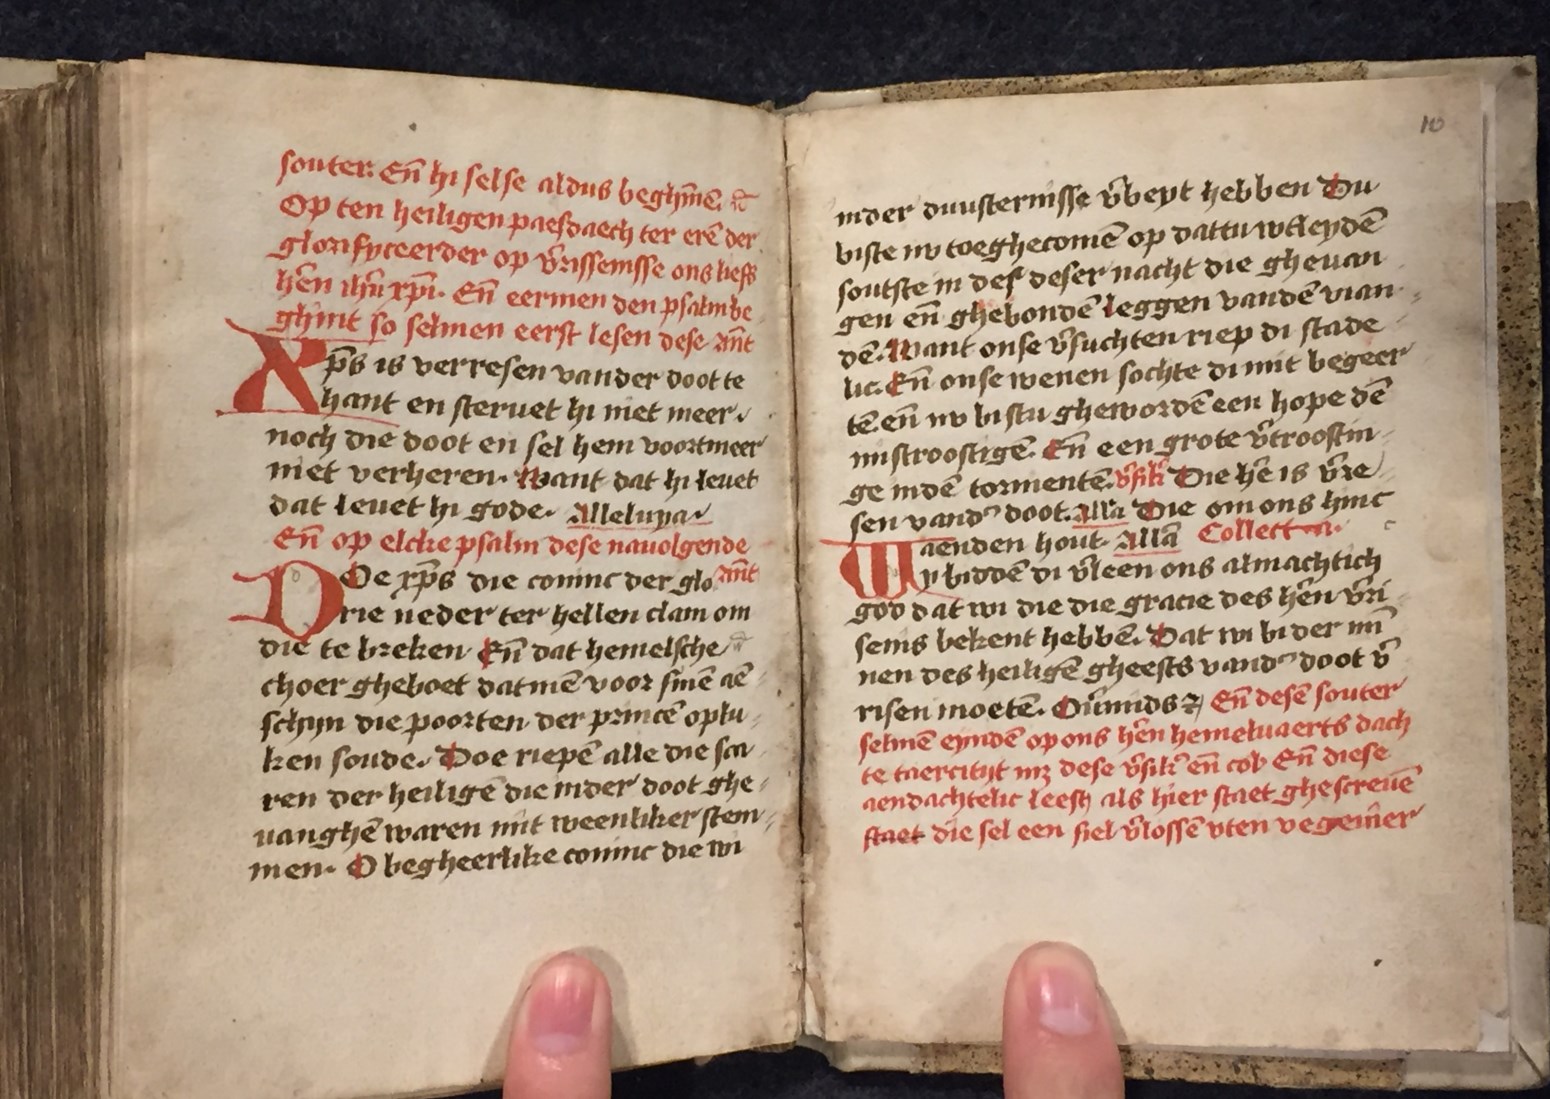 souter. Eñ hi selse aldus beghīnē.
Op ten heiligen paesdaech ter erē der
glorifyceerder op v̄rissenisse ons liefs
hēn ihū xp̄i. Eñ eermen den psalm be
ghīnt so selmen eerst lesen dese Ant̄
Xp̄s is verresen vander doot te
hant en steruet hi niet meer.
noch die doot en sel hem voortmeer
niet verheren. Want dat hi leuet
dat leuet hi gode. Alleluya.
Eñ op elcke psalm dese nauolgende
Ant̄
DOe xp̄s die coninc der glo
rie neder ter hellen clam om
die te breken. Eñ dat hemelsche
choer gheboet datmē voor sinē aē
schijn die poorten der princē oplu
ken soude. Doe riepē alle die sca
ren der heiligē die inder doot ghe
uanghē waren mit weenliker stem
men. O begheerlike coninc die wi
10
inder duusternisse v̄beyt hebben Du
biste nv toeghecomē op dattu wtleydē
soutste in des deser nacht die gheuan
gen eñ ghebondē leggen vandē vian
dē. Want onse v̄suchten riep di stade
lic. Eñ onse wenen sochte di mit begeer
tē. eñ nv bistu ghewordē een hope dē
mistroostigē. Eñ een grote v̄troostin
ge indē tormentē. v̄sikl̄ Die hē is v̄re
sen vand' doot. All̄a Die om ons hinc
aenden hout. All̄a Collecta.
Wy biddē di v̄leen ons almachtich
god dat wi die die gracie des hēn v̄ri
senis bekent hebbē. Dat wi bi der mī
nen des heiligē gheests vand' doot v̄
risen moetē. Ou̅mids Eñ desē souter
selmē eyndē op ons hēn hemeluaerts dach
te tercitijt mz dese v̄sikl̄ eñ coll̄ Eñ diese
aendachtelic leest als hier staet ghescreuē
staet die sel een siel v̄lossē vten vegewier